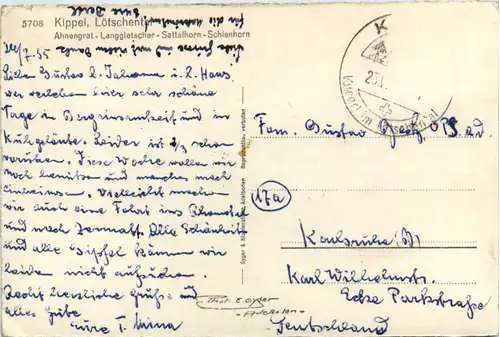 5708 Kippel, Lötschental
Ahnengrat - Langgletscher - Sattelhorn - Schienhorn
24/7.55
Liebe Gustav & Johanna u. l. Hans,
wir verleben hier sehr schöne
Tage in Bergeinsamkeit und in
Kuhgeläute. Leider ist 2/3 schon
vorüber. Diese Woche wollen wir
noch benützen und manches noch
Vielleicht machen
wir auch eine Fahrt ins Rhonetal
und nach Zermatt. Alle Schönheiten
und alle Gipfel können wir
leider nicht aufsuchen.
Recht herzliche Grüße und
alles Gute
Eure T. Mina
Liebe Grüsse und vielen Dank
für die
Eure
Gyger & Klopfenstein, Adelboden Reproduktion verboten
K
25.
Kurort im Lötschental
Fam. Gustav
17a
Karlsruhe
Karl Wilhelmstr.
Ecke Parkstraße
Deutschland
Phot. E. Gyger
- Adelboden -